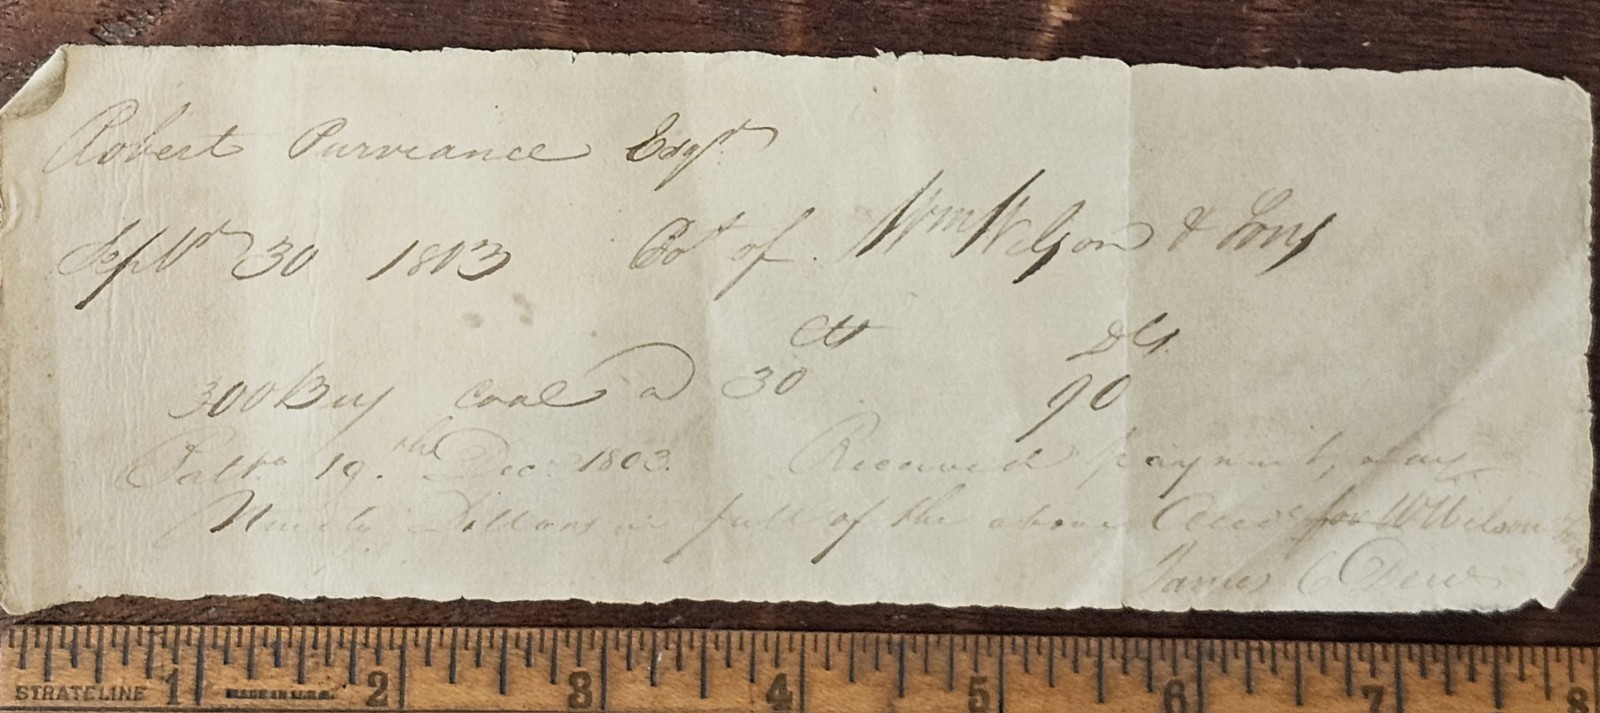 Robert Purviance Esqr
Septr 30 1803 Bot of Wm Wilson & Sons
Cts Dls
300 Bus coal a 30 90
Balto 19.th Dec. 1803. Received payment,
Ninety Dollars in full of the above Acct for W Wilson & Sons
James C Dew
STRATELINE 1 MADE IN U.S.A. 2 3 4 5 6 7 8